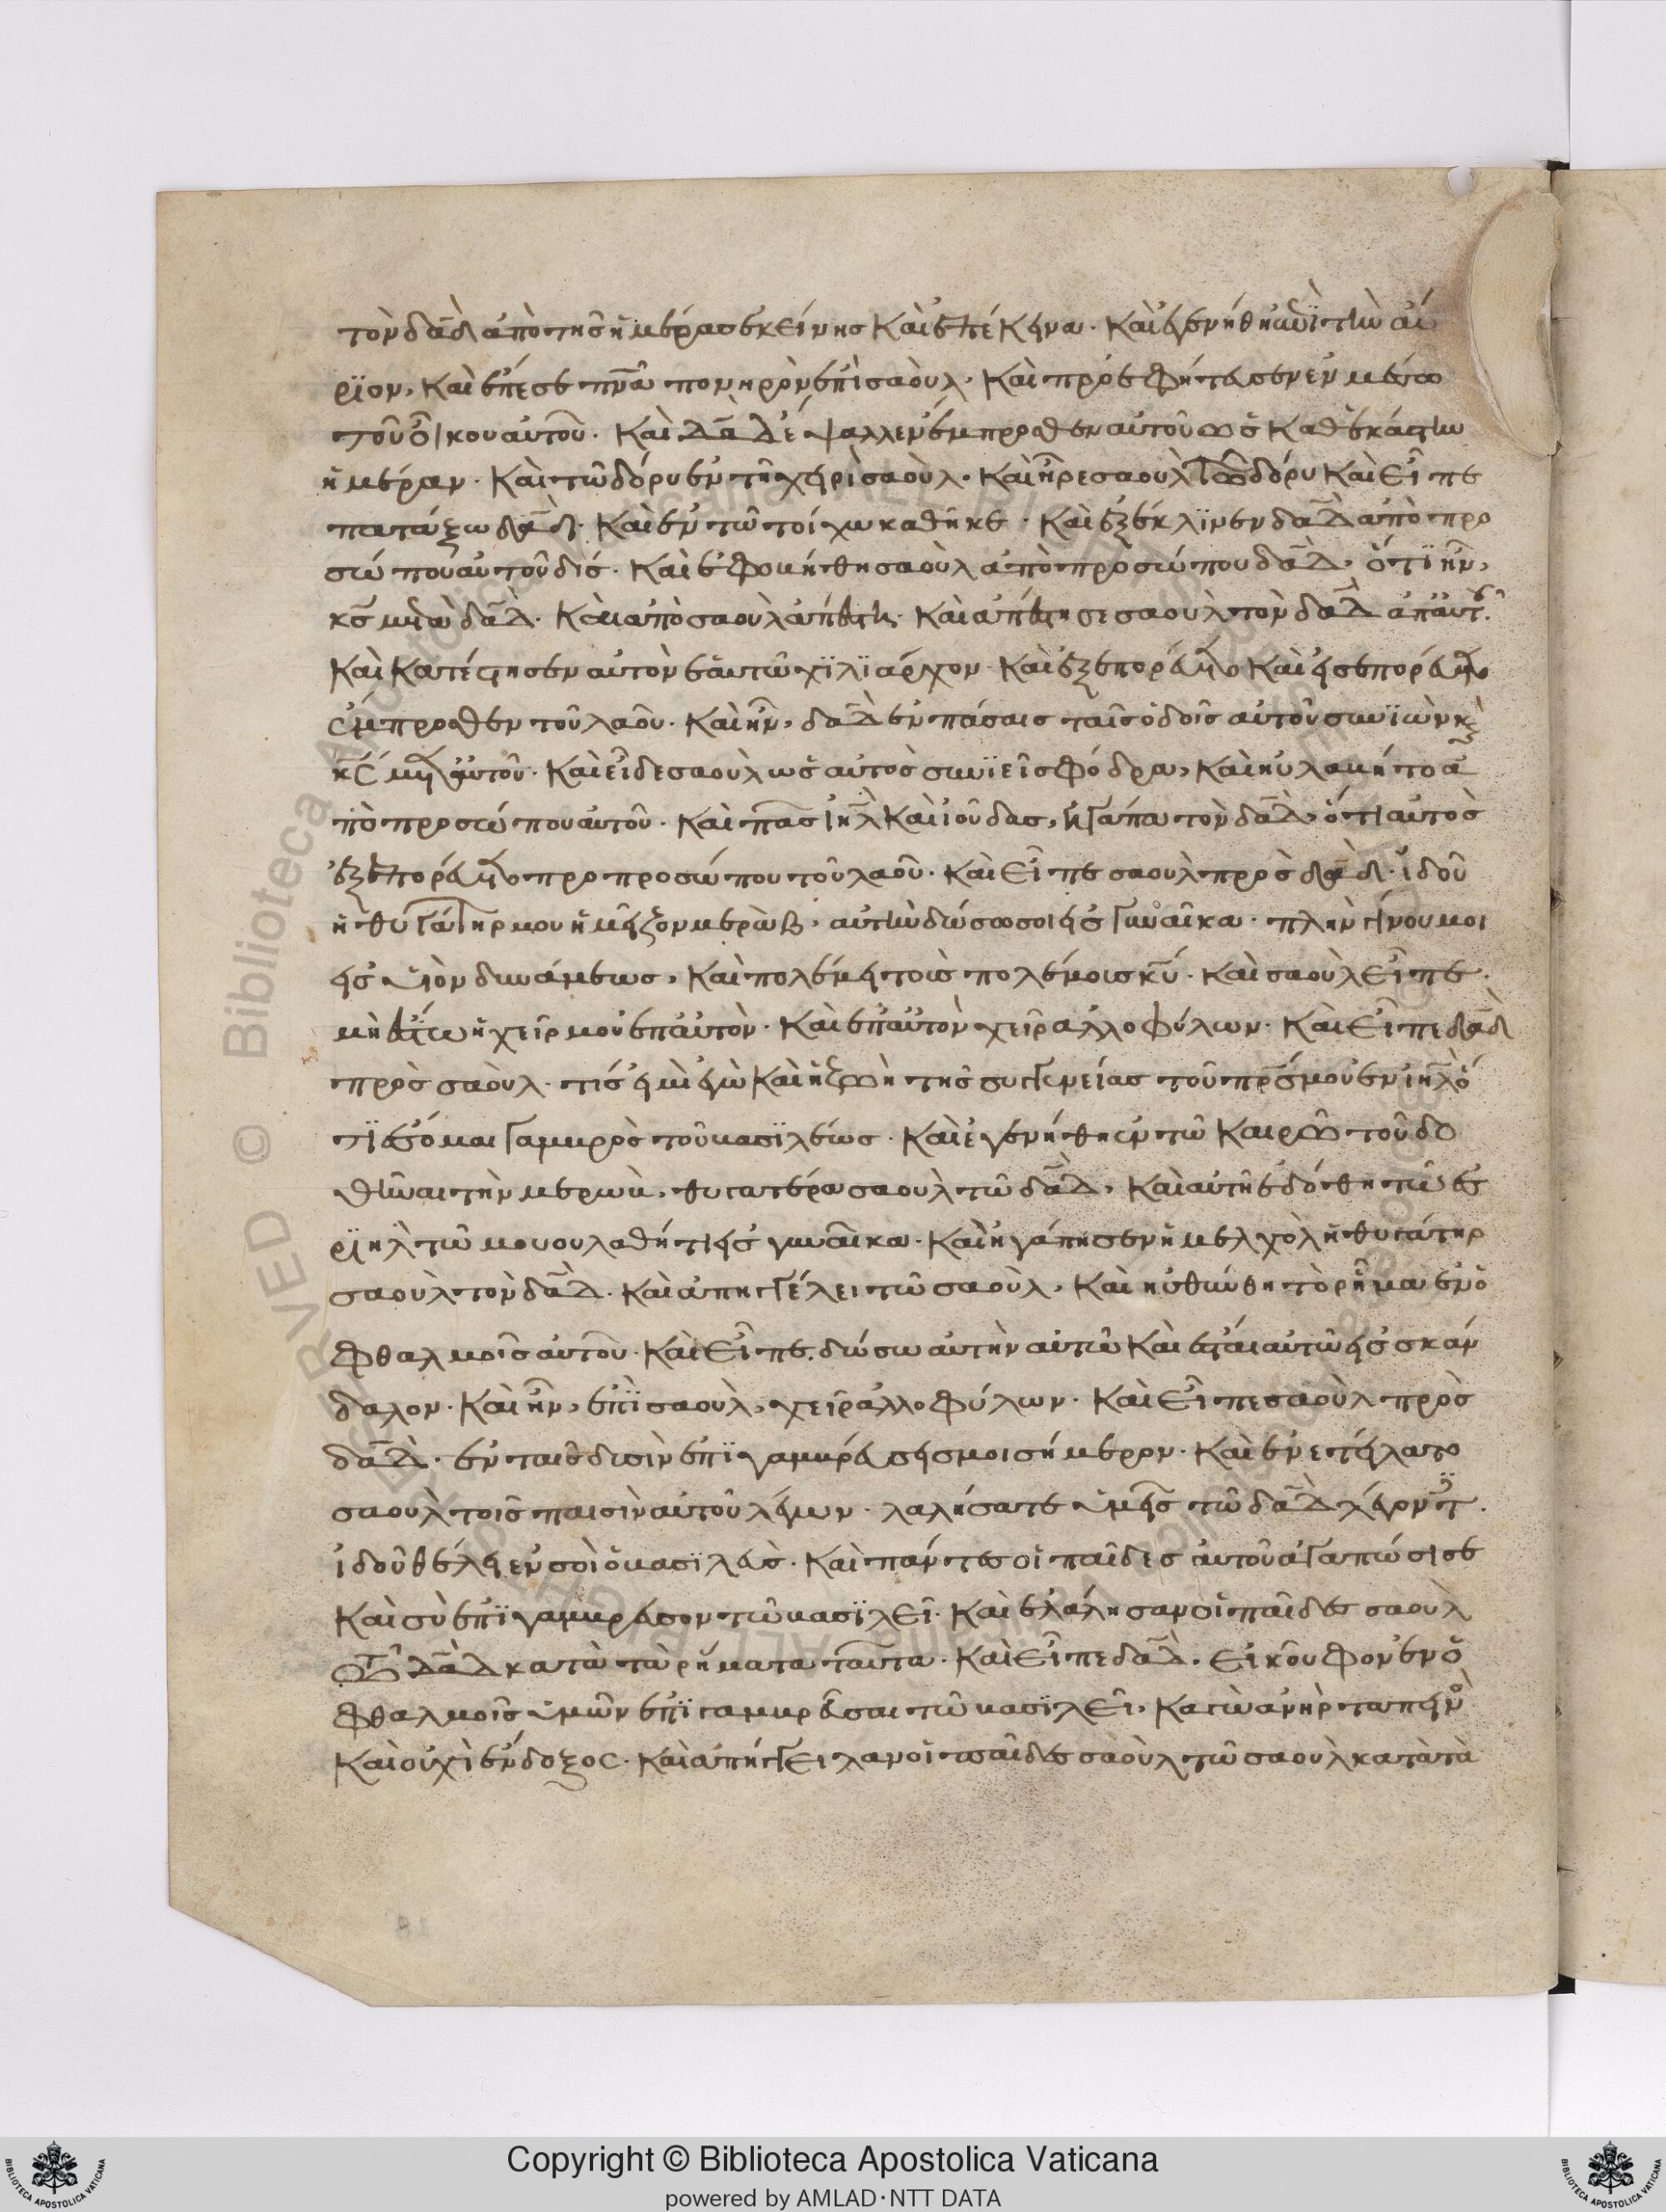 τὸν δᾱδ ἀπὸ τῆς ἡμέρας ἐκείνης καὶ ἐπέκεινα· καὶ ἐγενήθη ἀπὶ τὴν αὔ
ρϊον, καὶ ἔπεσε πν̅α πονηρὸν ἐπὶ σαοὺλ· καὶ προεφήτευσεν ἐν μέσω
τοῦ οἴκου αὐτοῦ· καὶ δᾱδ ἔψαλλεν ἔμπροσθεν αὐτοῦ ὡς καθ ἑκάστην
ἡμέραν· καὶ τῶ δόρυ ἐν τῆ χειρὶ σαοὺλ· καὶ ἦρε σαοὺλ τῶ δόρυ καὶ εἶπε
πατάξω δᾱδ· καὶ ἐν τῶ τοίχω καθῆκε· καὶ ἐξέκλϊνεν δᾱδ ἀπὸ προ
σώπου αὐτοῦ δίς· καὶ ἐφοβήθη σαοὺλ ἀπὸ προσώπου δᾱδ, ὅτϊ ἦν,
κ̅ς μετὰ δᾱδ· καὶ ἀπὸ σαοὺλ ἀπέστη· καὶ ἀπέστησε σαοὺλ τὸν δᾱδ ἀπ αὐτοῦ·
καὶ κατέστησεν αὐτὸν ἑαυτῶ χϊλϊαρχον· καὶ ἐξεπορεύετο καὶ εἰσεπορεύετο
ἔμπροσθεν τοῦ λαοῦ· καὶ ἦν, δᾱδ ἐν πάσαις ταῖς ὁδοῖς αὐτοῦ συνϊὼν κ̀
κ̅ς μετ αὐτοῦ· καὶ εἶδε σαοὺλ ὡς αὐτὸς συνϊεῖ σφόδρα, καὶ ηὐλαβήτο ἀ
πὸ προσώπου αὐτοῦ· καὶ πᾶς ιη̅λ καὶ ἰούδας, ἠγάπα τὸν δᾱδ, ὅτι αὐτὸς
ἐξεπορεύετο πρὸ προσώπου τοῦ λαοῦ· καὶ εἶπε σαοὺλ πρὸς δᾱδ· ἰδοῦ
ἡ θυγάτηρ μου ἡ μείζον μερὼβ, αὐτὴν δώσω σοι εἰς γυναῖκα· πλὴν γίνου μοι
εἰς υἱὸν δυνάμεως, καὶ πολέμει τοὺς πολέμοις κ̅υ· καὶ σαοὺλ εἶπε·
μὴ ἔστω ἡ χεῖρ μου ἐπ αὐτὸν· καὶ ἐπ αὐτὸν χεῖρ ἀλλοφύλων· καὶ εἶπε δᾱδ
πρὸς σαοὺλ· τίς εἰμὶ ἐγὼ καὶ ἡ ζωὴ τῆς συγγενείας τοῦ πρ̅ς μου ἐν ιη̅λ ὅ
τϊ ἔσομαι γαμβρὸς τοῦ βασϊλέως· καὶ ἐγενήθη ἐν τῶ καιρῶ τοῦ δο
θῆναι τὴν μερὼβ, θυγατέρα σαοὺλ τῶ δᾱδ, καὶ αὐτὴ ἐδόθη τῶ ἐσ
ρϊηλ τῶ μουουλαθήτι εἰς γυναῖκα· καὶ ἠγάπησεν ἡ μελχὸλ ἡ θυγάτηρ
σαοὺλ τὸν δᾱδ· καὶ ἀπηγγέλει τῶ σαοὺλ, καὶ ηὐθύνθη τὸ ρῆμα ἐν ὀ
φθαλμοῖς αὐτοῦ· καὶ εἶπε· δώσω αὐτὴν αὐτῶ καὶ ἔσται αὐτῶ εἰς σκάν
δαλον· καὶ ἦν, ἐπϊ σαοὺλ, χεῖρ ἀλλοφύλων· καὶ εἶπε σαοὺλ πρὸς
δᾱδ· ἐν ταῖς δυσὶν ἐπϊγαμβρεύσεις μοι σήμερον· καὶ ἐνετείλατο
σαοὺλ τοῖς παισὶν αὐτοῦ λέγων· λαλήσατε ὑμεῖς τῶ δᾱδ λέγοντ·
ἰδοῦ θέλει ἐν σοὶ ὁ βασϊλεὺς· καὶ πάντες οἱ παῖδες αὐτοῦ ἀγαπῶσι σε
καὶ σὺ ἐπϊγαμβρευσον τῶ βασϊλεῖ· καὶ ἐλάλησαν οἱ παῖδες σαοὺλ
τῶ δᾱδ κατὰ τὰ ρήματα ταῦτα· καὶ εἶπε δᾱδ· εἰ κοῦφον ἐν ὀ
φθαλμοῖς ὑμῶν ἐπϊγαμβρεῦσαι τῶ βασϊλεῖ, καγὼ ἀνὴρ ταπεινὸ
καὶ οὐχὶ ἔνδοξος· καὶ ἀπήγγειλαν οἱ παῖδες σαοὺλ τῶ σαοὺλ κατὰ τὰ
Copyright © Biblioteca Apostolica Vaticana
powered by AMLAD·NTT DATA